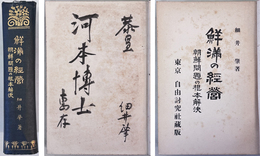 鮮滿の經營
朝鮮問題の根本解決
細井肇著
恭呈
河本博士
惠存
細井肇
細井肇著
鮮滿の經營
朝鮮問題の根本解決
東京 自由討究社藏版